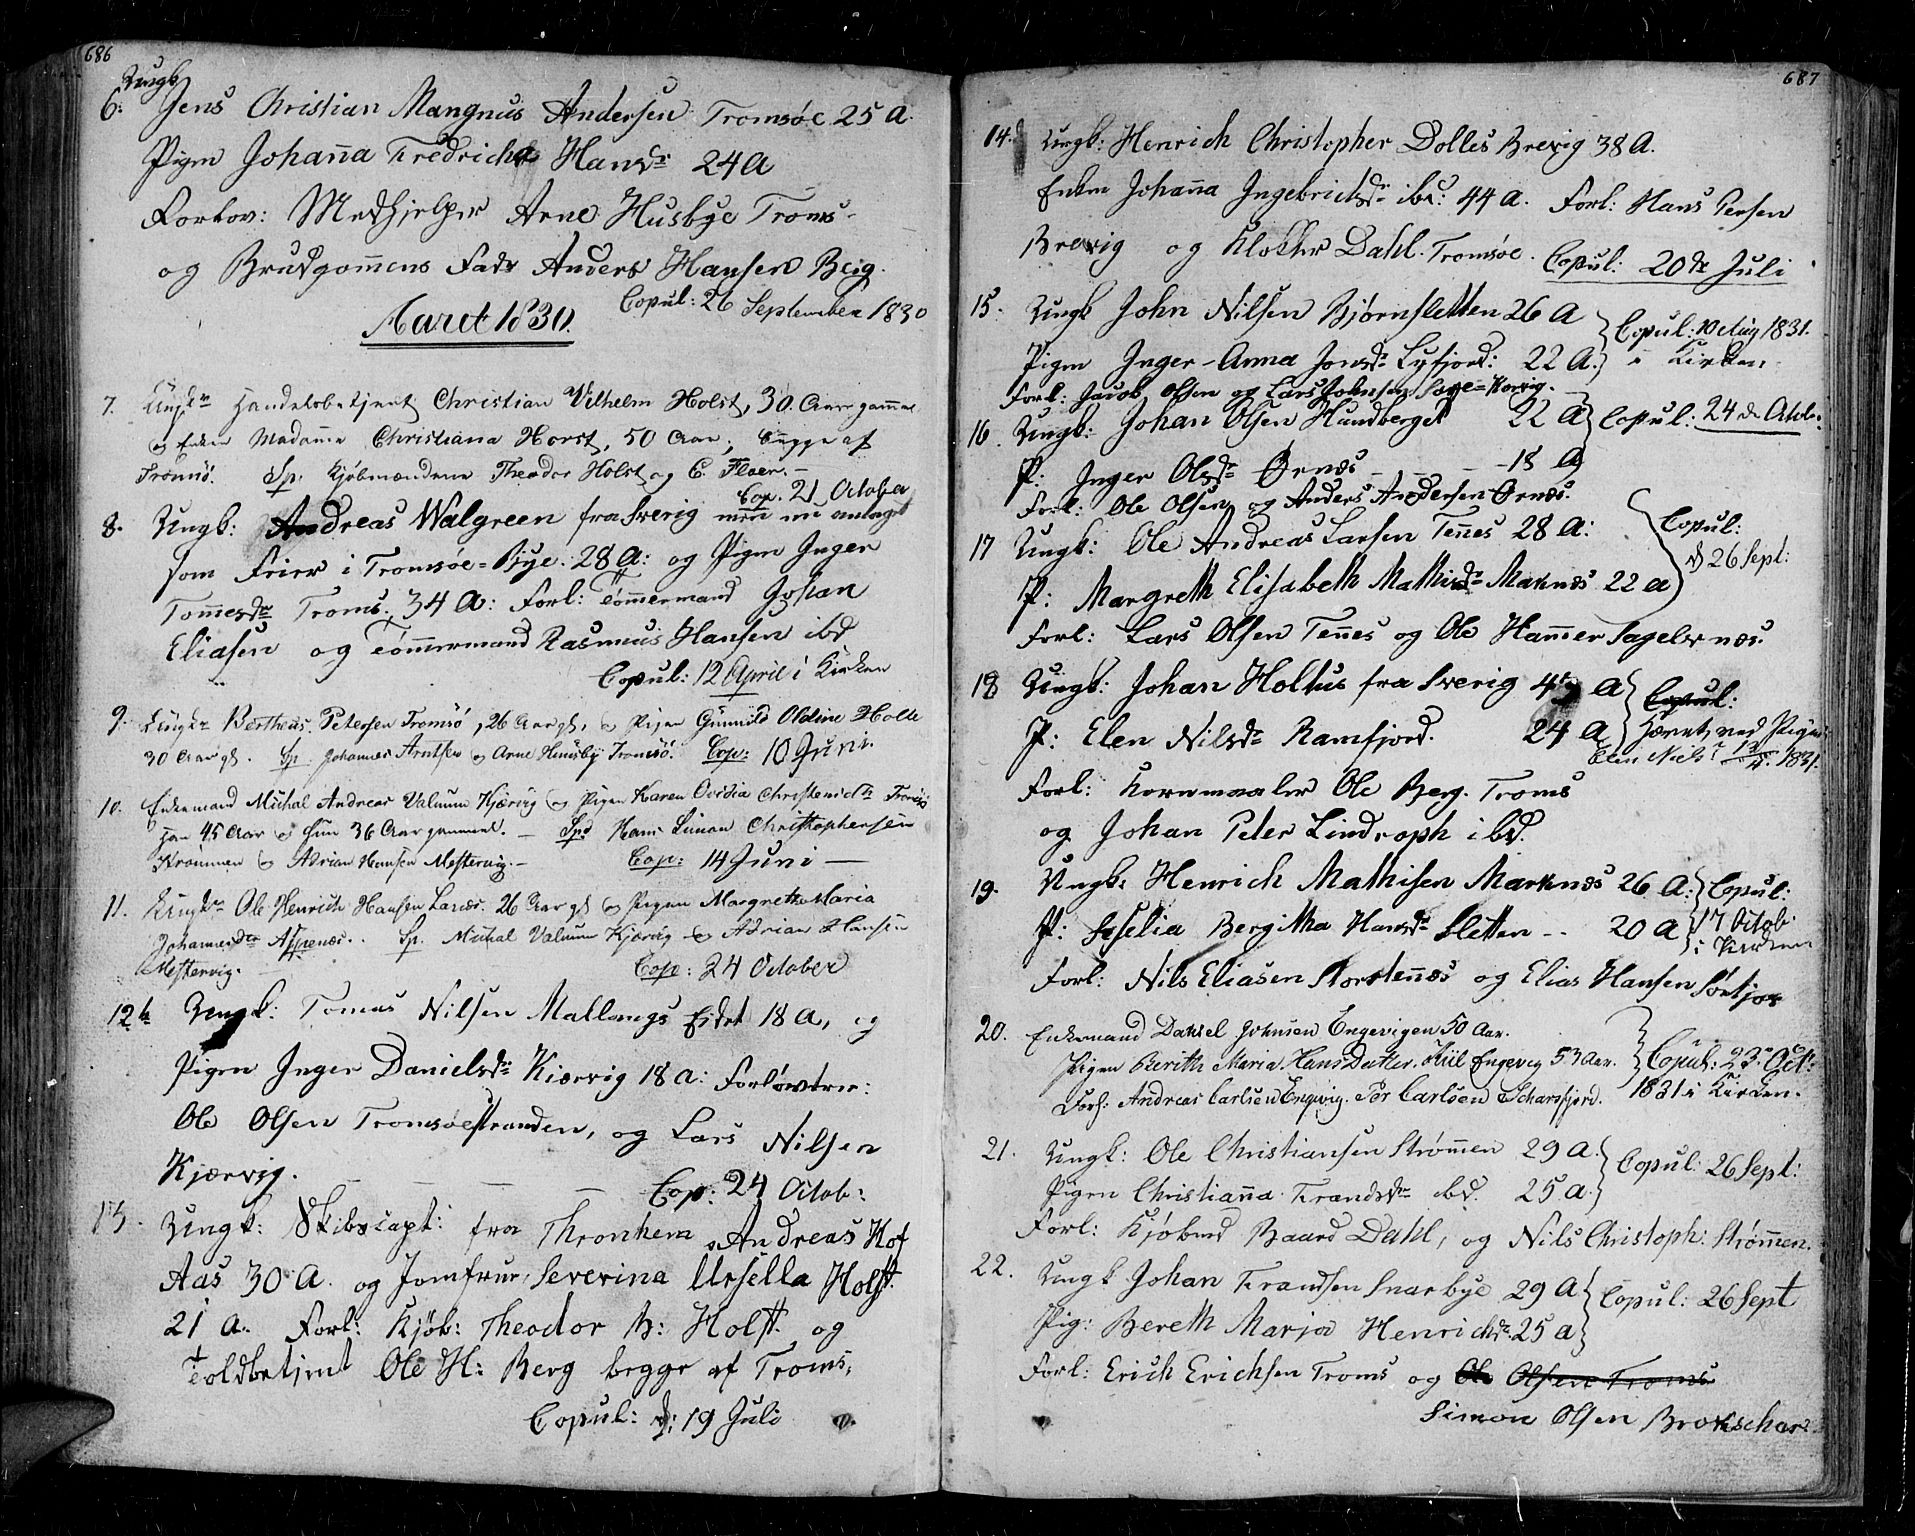 686
Ungk
6. Jens Christian Mangnus Andersen Tromsøe 25 A.
Pigen Johan̄a Fredricha Hansdr 24 A
Forlov: Medhjelper Arne Husbye Troms-
og Brudgom̄ens Fadr Anders Hansen Berg.
Copul: 26 September 1830
Aaret 1830.
7. Ungkr Handelsbetjent Christian Vilhelm Holst, 30 Aar gammel
og Enken Madam̄e Christiana Horst, 50 Aar, begge af
Tromsø. Sp. Kjøbmændene Theodor Holst og C. Floer. -
Cop. 21 October
8. Ungk: Andreas Walgreen fra Sverig men nu antaget
som Feier i Tromsøe-Bye. 28 A: og Pigen Inger
Tom̄esdr Troms. 34 A: Forl: Tøm̄ermand Johan
Eliasen og Tøm̄ermand Rasmus Hansen ibd
Copul: 12 April i Kirken
9. Ungkr Bertheus Petersen Tromsø, 26 Aar gl, og Pigen Gunnild Oldine Holte
30 Aar gl. Sp. Johannes Arntsen og Arne Huusby Tromsø. Cop: 10 Juni.
10. Enkemand Michal Andreas Valuum Kjærvig og Pigen Karen Ovidia Christensdr Tromsø
han 45 Aar og hun 36 Aar gammel. - Spd Hans Simon Christophersen
Strømmen og Adrian Hansen Mestervig. - Cop: 14 Juni -
11. Ungkr Ole Henrich Hansen Lanæs. 26 Aar gl og Pigen Margretha Maria
Johannesdr Aspenæs. Sp. Michal Valuum Kjærvig og Adrian Hansen
Mestervig. - Cop: 24 October
12te Ungk: Tomas Nilsen Mallangs Eidet 18 A, og
Pigen Inger Danielsdr Kiærvig 18 a: Forlovere:
Ole Olsen Tromsøestranden, og Lars Nilsen
Kjærvig. Cop: 24 Octob:
13. Ungk: Skibscapt: fra Thronhem Andreas Hof
Aas 30 A. og Jomfrue Severina Ursella Holst
21 A. Forl: Kjøb: Theodor B: Holst og
Toldbetjent Ole H: Berg begge af Troms,
Copul: d: 19 Juli
687
14. Ungk: Henrich Christopher Dolles Brevig 38 A.
Enken Johan̄a Ingebrictsdr ibd: 44 A. Forl: Hans Persen
Brevig og Klokker Dahl. Tromsøe. Copul: 20de Juli
15. Ungk John Nilsen Bjørnsletten 26 A
Copul: 10 Aug 1831.
Pigen Inger-Anna Jonsdr Lyfjord: 22 A. i Kirken
Forl: Jacob Olsen og Lars Johnsen Sage=Korvig.
16. Ungk: Johan Olsen Hundberget 22 A Copul: 24 de Octob:
P: Inger Olsdr Ørnæs - - - 18 A
Forl: Ole Olsen og Anders Andersen Ørnæs.
17 Ungk: Ole Andreas Larsen Ten̄es 28 A:
Copul:
d 26 Sept:
P: Margreth Elisabeth Mathisdr Maknæs 22 a
Forl: Lars Olsen Ten̄es og Ole Ham̄er Sagelvnæs.
18 Ungk: Johan Holtus fra Sverig 4 A Copul:
P: Elen Nilsdr Ramfjord. 24 A Hævet ved Pigen
Elen Nielsr 1831.
Forl: Kornmaaler Ole Berg. Troms
og Johan Peter Lindroph ibd.
19. Ungk: Henrich Mathisen Marknæs 26 A: Copul:
P: Seselia Bergitha Hansdr Sletten - - 20 A 17 Octob
i Kirken
Forl: Nils Eliasen Norsten̄æs og Elias Hansen Sørfjor
20. Enkemand Daniel Johnsen Engevigen 50 Aar.
Pigen Berith Maria HansDatter. Kiil Engevig 53 Aar. Copul: 23de Oct:
Forl: Andreas Carlsen Engevig. Per Carlsen Scharsfjord. 1831 i Kirken.
21. Ungk: Ole Christiansen Strøm̄en 29 A. Copul: 26 Sept:
Pigen Christian̄a Trandsdr ibd. 25 a.
Forl: Kjøbmd Baard Dahl, og Nils Christoph: Strøm̄en.
22. Ungk Johan Trandsen Snarbye 29 A Copul: 26 Sept
Pig: Bereth Marja Henrichdr 25 a
Forl: Erich Erichsen Troms og Ole Olsen Troms
Simon Olsen Brokschar